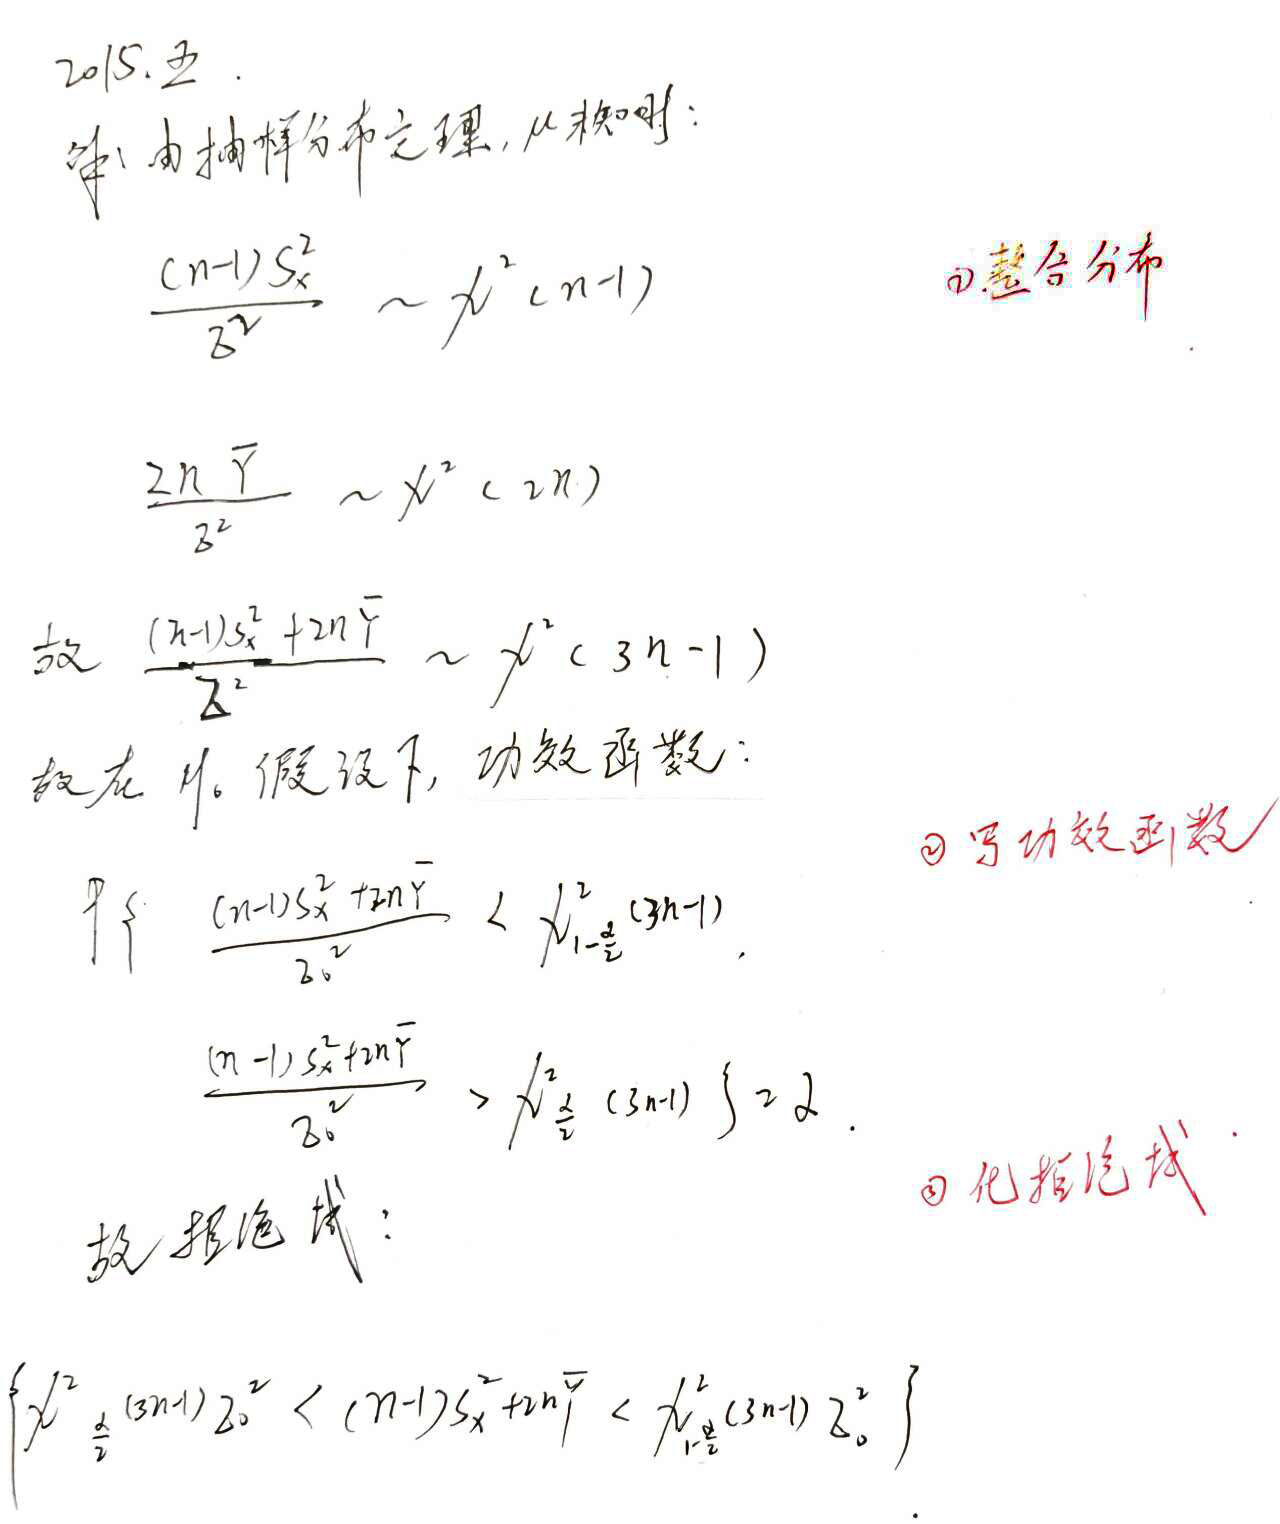 2015.五.
解: 由抽样分布定理, μ未知时:
(n-1)S_x^2 / σ^2 ~ χ^2(n-1)
①整合分布
2nȲ / σ^2 ~ χ^2(2n)
故 ((n-1)S_x^2+2nȲ) / σ^2 ~ χ^2(3n-1)
故在 H₀ 假设下, 功效函数:
②写功效函数
P{ ((n-1)S_x^2+2nȲ) / σ_0^2 < χ^2_{1-α/2}(3n-1),
((n-1)S_x^2+2nȲ) / σ_0^2 > χ^2_{α/2}(3n-1) } = α.
③化拒绝域
故拒绝域:
{ χ^2_{α/2}(3n-1)σ_0^2 < (n-1)S_x^2+2nȲ < χ^2_{1-α/2}(3n-1)σ_0^2 }.